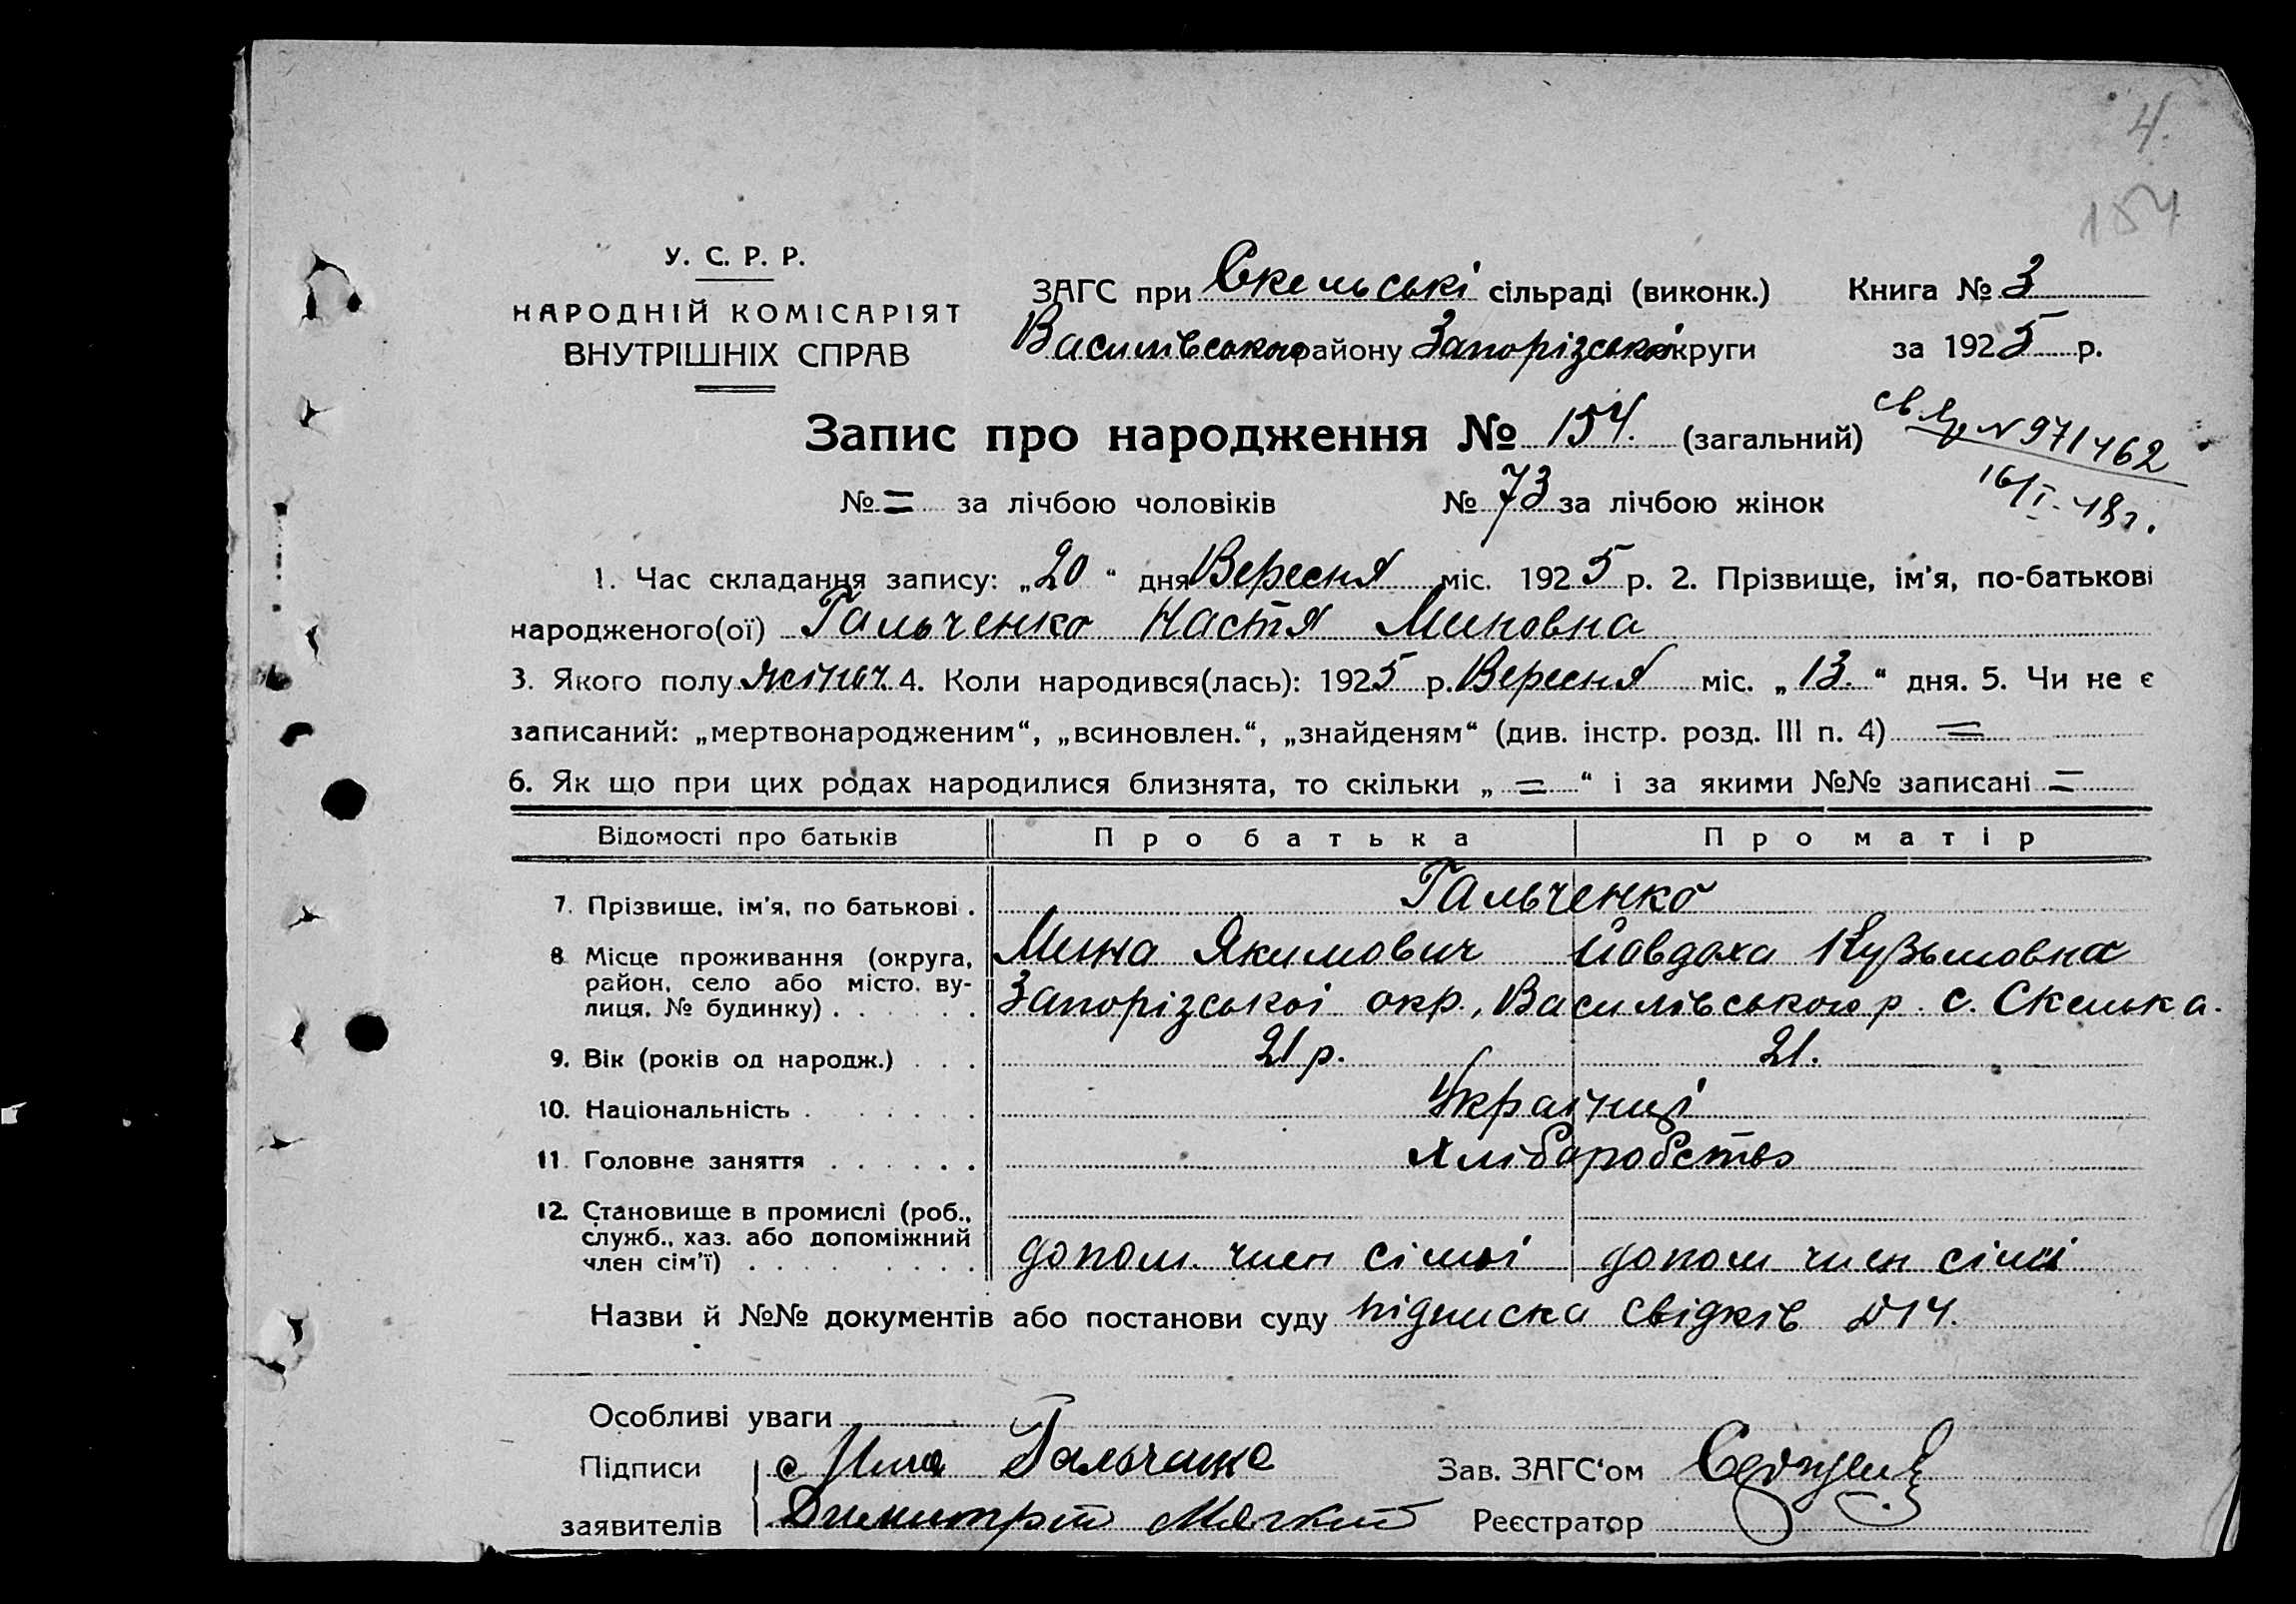 4.
154
У. С. Р. Р.
НАРОДНІЙ КОМІСАРІЯТ
ВНУТРІШНІХ СПРАВ
ЗАГС при Скельські сільраді (виконк.) Книга № 3
Василівського району Запорізської округи за 1925 р.
Запис про народження № 154. (загальний)
№ 971462
16/I-48 г.
№ = за лічбою чоловіків № 73 за лічбою жінок
1. Час складання запису: „20“ дня Вересня міс. 1925 р. 2. Прізвище, ім'я, по-батькові
народженого(ої) Гальченко Настя Миновна
3. Якого полу жіноч. 4. Коли народився(лась): 1925 р. Вересня міс. „13.“ дня. 5. Чи не є
записаний: „мертвонародженим“, „всиновлен.“, „знайденям“ (див. інстр. розд. III п. 4) =
6. Як що при цих родах народилися близнята, то скільки „=“ і за якими №№ записані =
Відомості про батьків Про батька Про матір
7. Прізвище, ім'я, по батькові . Гальченко
Мина Якимович Йовдоха Кузьмовна
8 Місце проживання (округа,
район, село або місто, ву-
лиця, № будинку) . . . . . . Запорізської окр., Василівського р. с. Скелька.
9. Вік (років од народж.) . . . 21 р. 21.
10. Національність . . . . . . . Українці
11. Головне заняття . . . . . . Хліборобство
12. Становище в промислі (роб.,
служб., хаз. або допоміжний
член сім'ї) . . . . . . . . допом. член сімьі допом член сімьі
Назви й №№ документів або постанови суду підписка свідків № 14.
Особливі уваги
Підписи Мина Гальченко Зав. ЗАГС'ом
заявителів Димитрий Мягкий Реєстратор